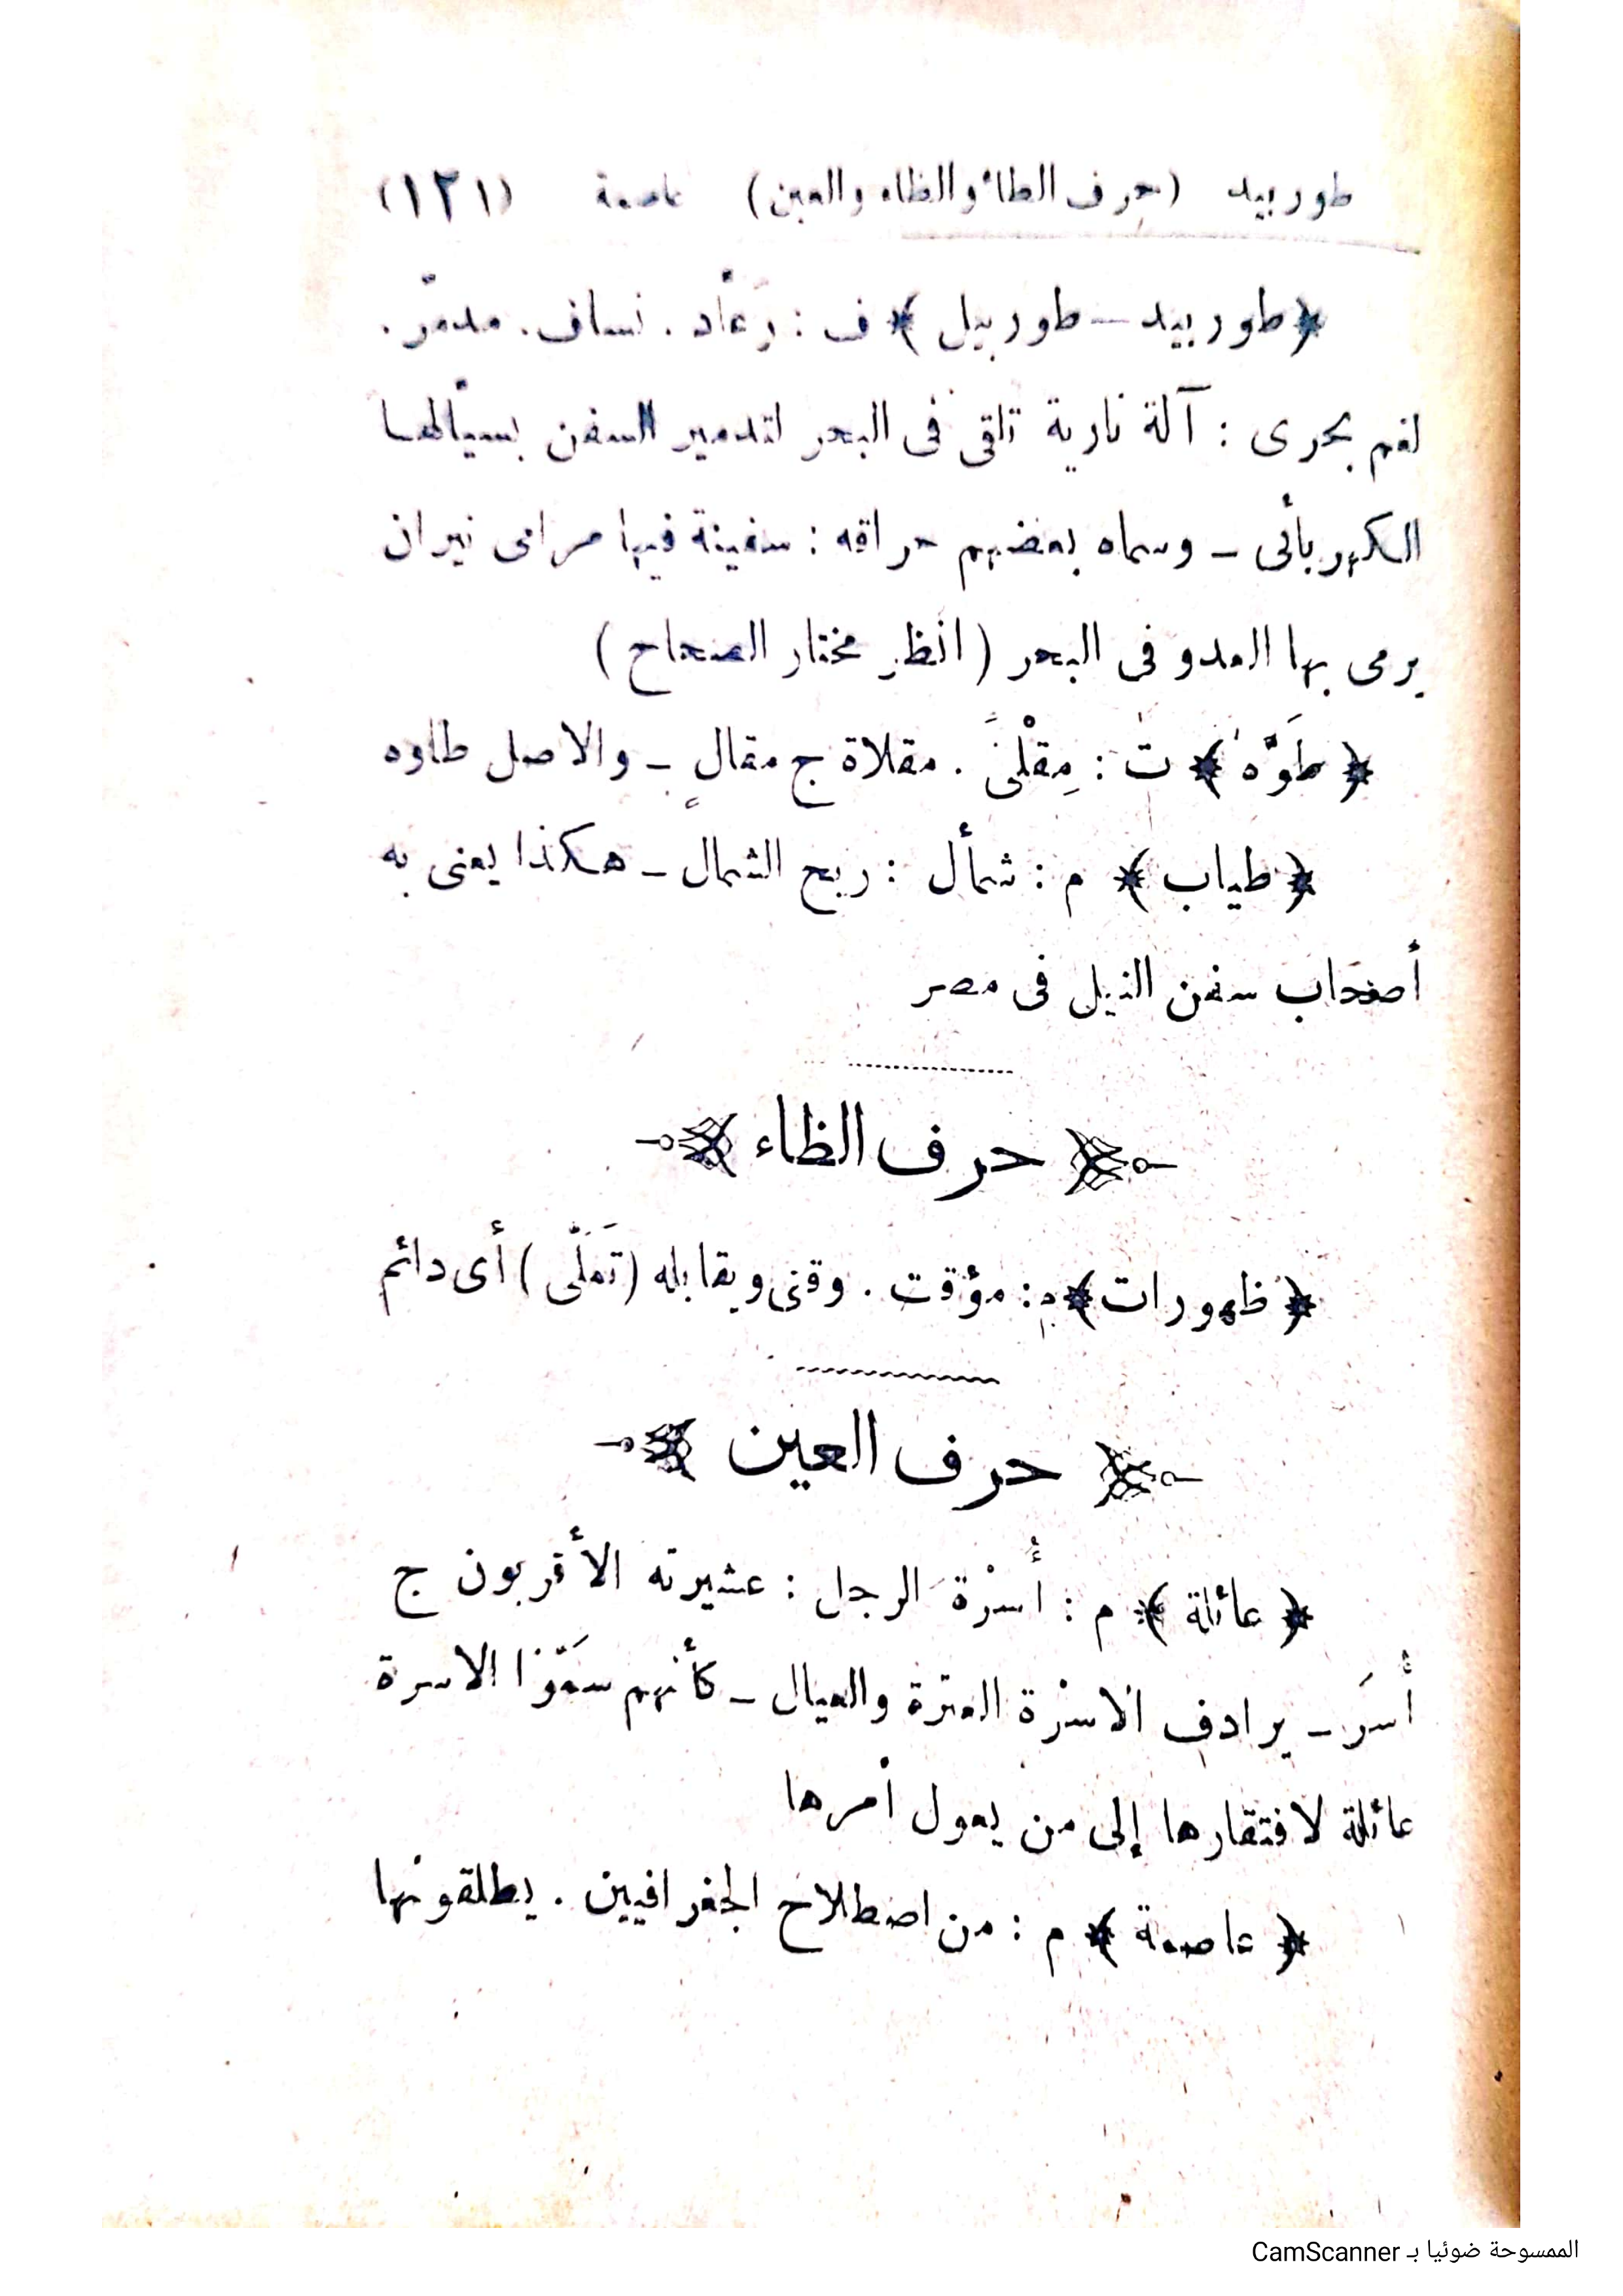 طوربيد (حرف الطاء والظاء والعين) عاصمة (١٢١)
﴿طوربيد — طوربيل﴾ ف : رَعَّاد . نساف . مدمّر .
لغم بحرى : آلة نارية تلقى فى البحر لتدمير السفن بسيّالها
الكهربأئى ــ وسماه بعضهم حراقه : سفينة فيها مرامى نيران
يرمى بها العدو فى البحر ( انظر مختار الصحاح )
﴿ طَوَّه ﴾ ت : مِقْلىً . مقلاة ج مقالٍ ــ والاصل طاوه
﴿ طياب ﴾ م : شمأل : ريح الشمال ــ هكذا يعنى به
أصحاب سفن النيل فى مصر
حرف الظاء
﴿ ظهورات ﴾ م : مؤقت . وقتى ويقابله ( تَمَلّى ) أى دائم
حرف العين
﴿ عائلة ﴾ م : أُسْرة الرجل : عشيرته الأقربون ج
أُسَر ــ يرادف الاسْرة العترة والعيال ــ كأنهم سَمَّوْا الاسرة
عائلة لافتقارها إلى من يعول أمرها
﴿ عاصمة ﴾ م : من اصطلاح الجغرافيين . يطلقونها
الممسوحة ضوئيا بـ CamScanner